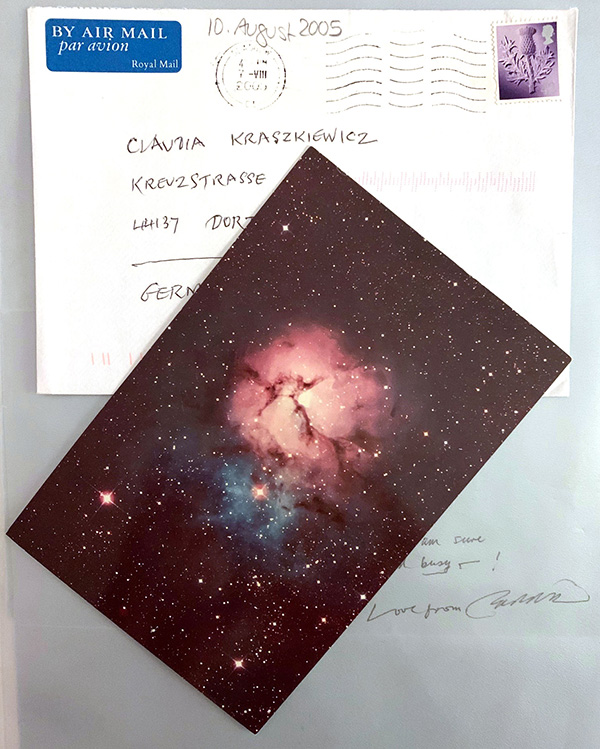 BY AIR MAIL
par avion
Royal Mail
10. AUGUST 2005
VIII
CLAUDIA KRASZKIEWICZ
KREUZSTRASSE
44137 DORT
GERM
am sure
busy — !
Love from